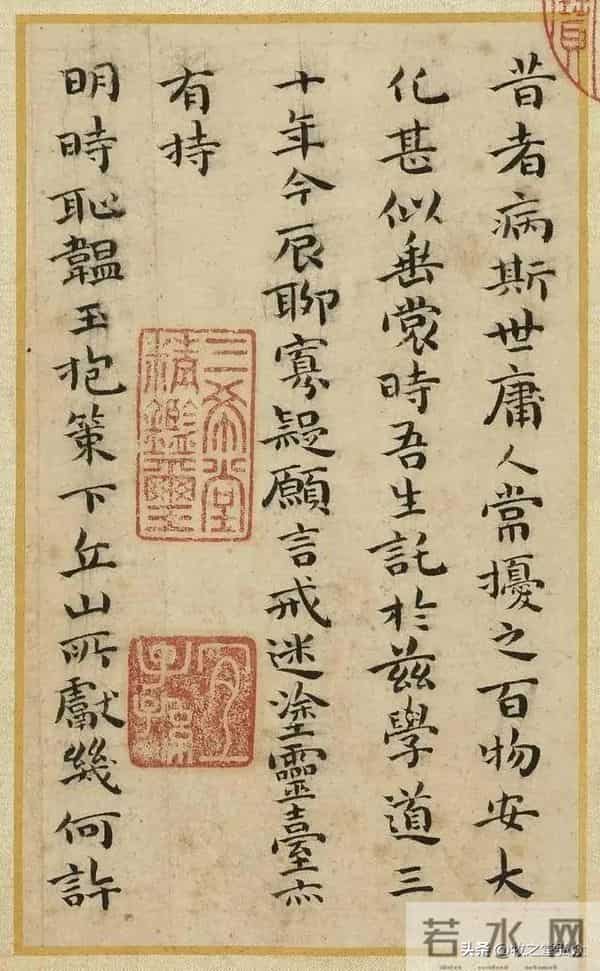 昔者病斯世庸人常擾之百物安大
化甚似垂裳時吾生託於茲學道三
十年今辰聊寡疑願言戒迷塗靈臺亦
有持
明時恥韞玉抱策下丘山所獻幾何許
三希堂精鑑璽
宜子孫
若水网
头条 @牧之堂